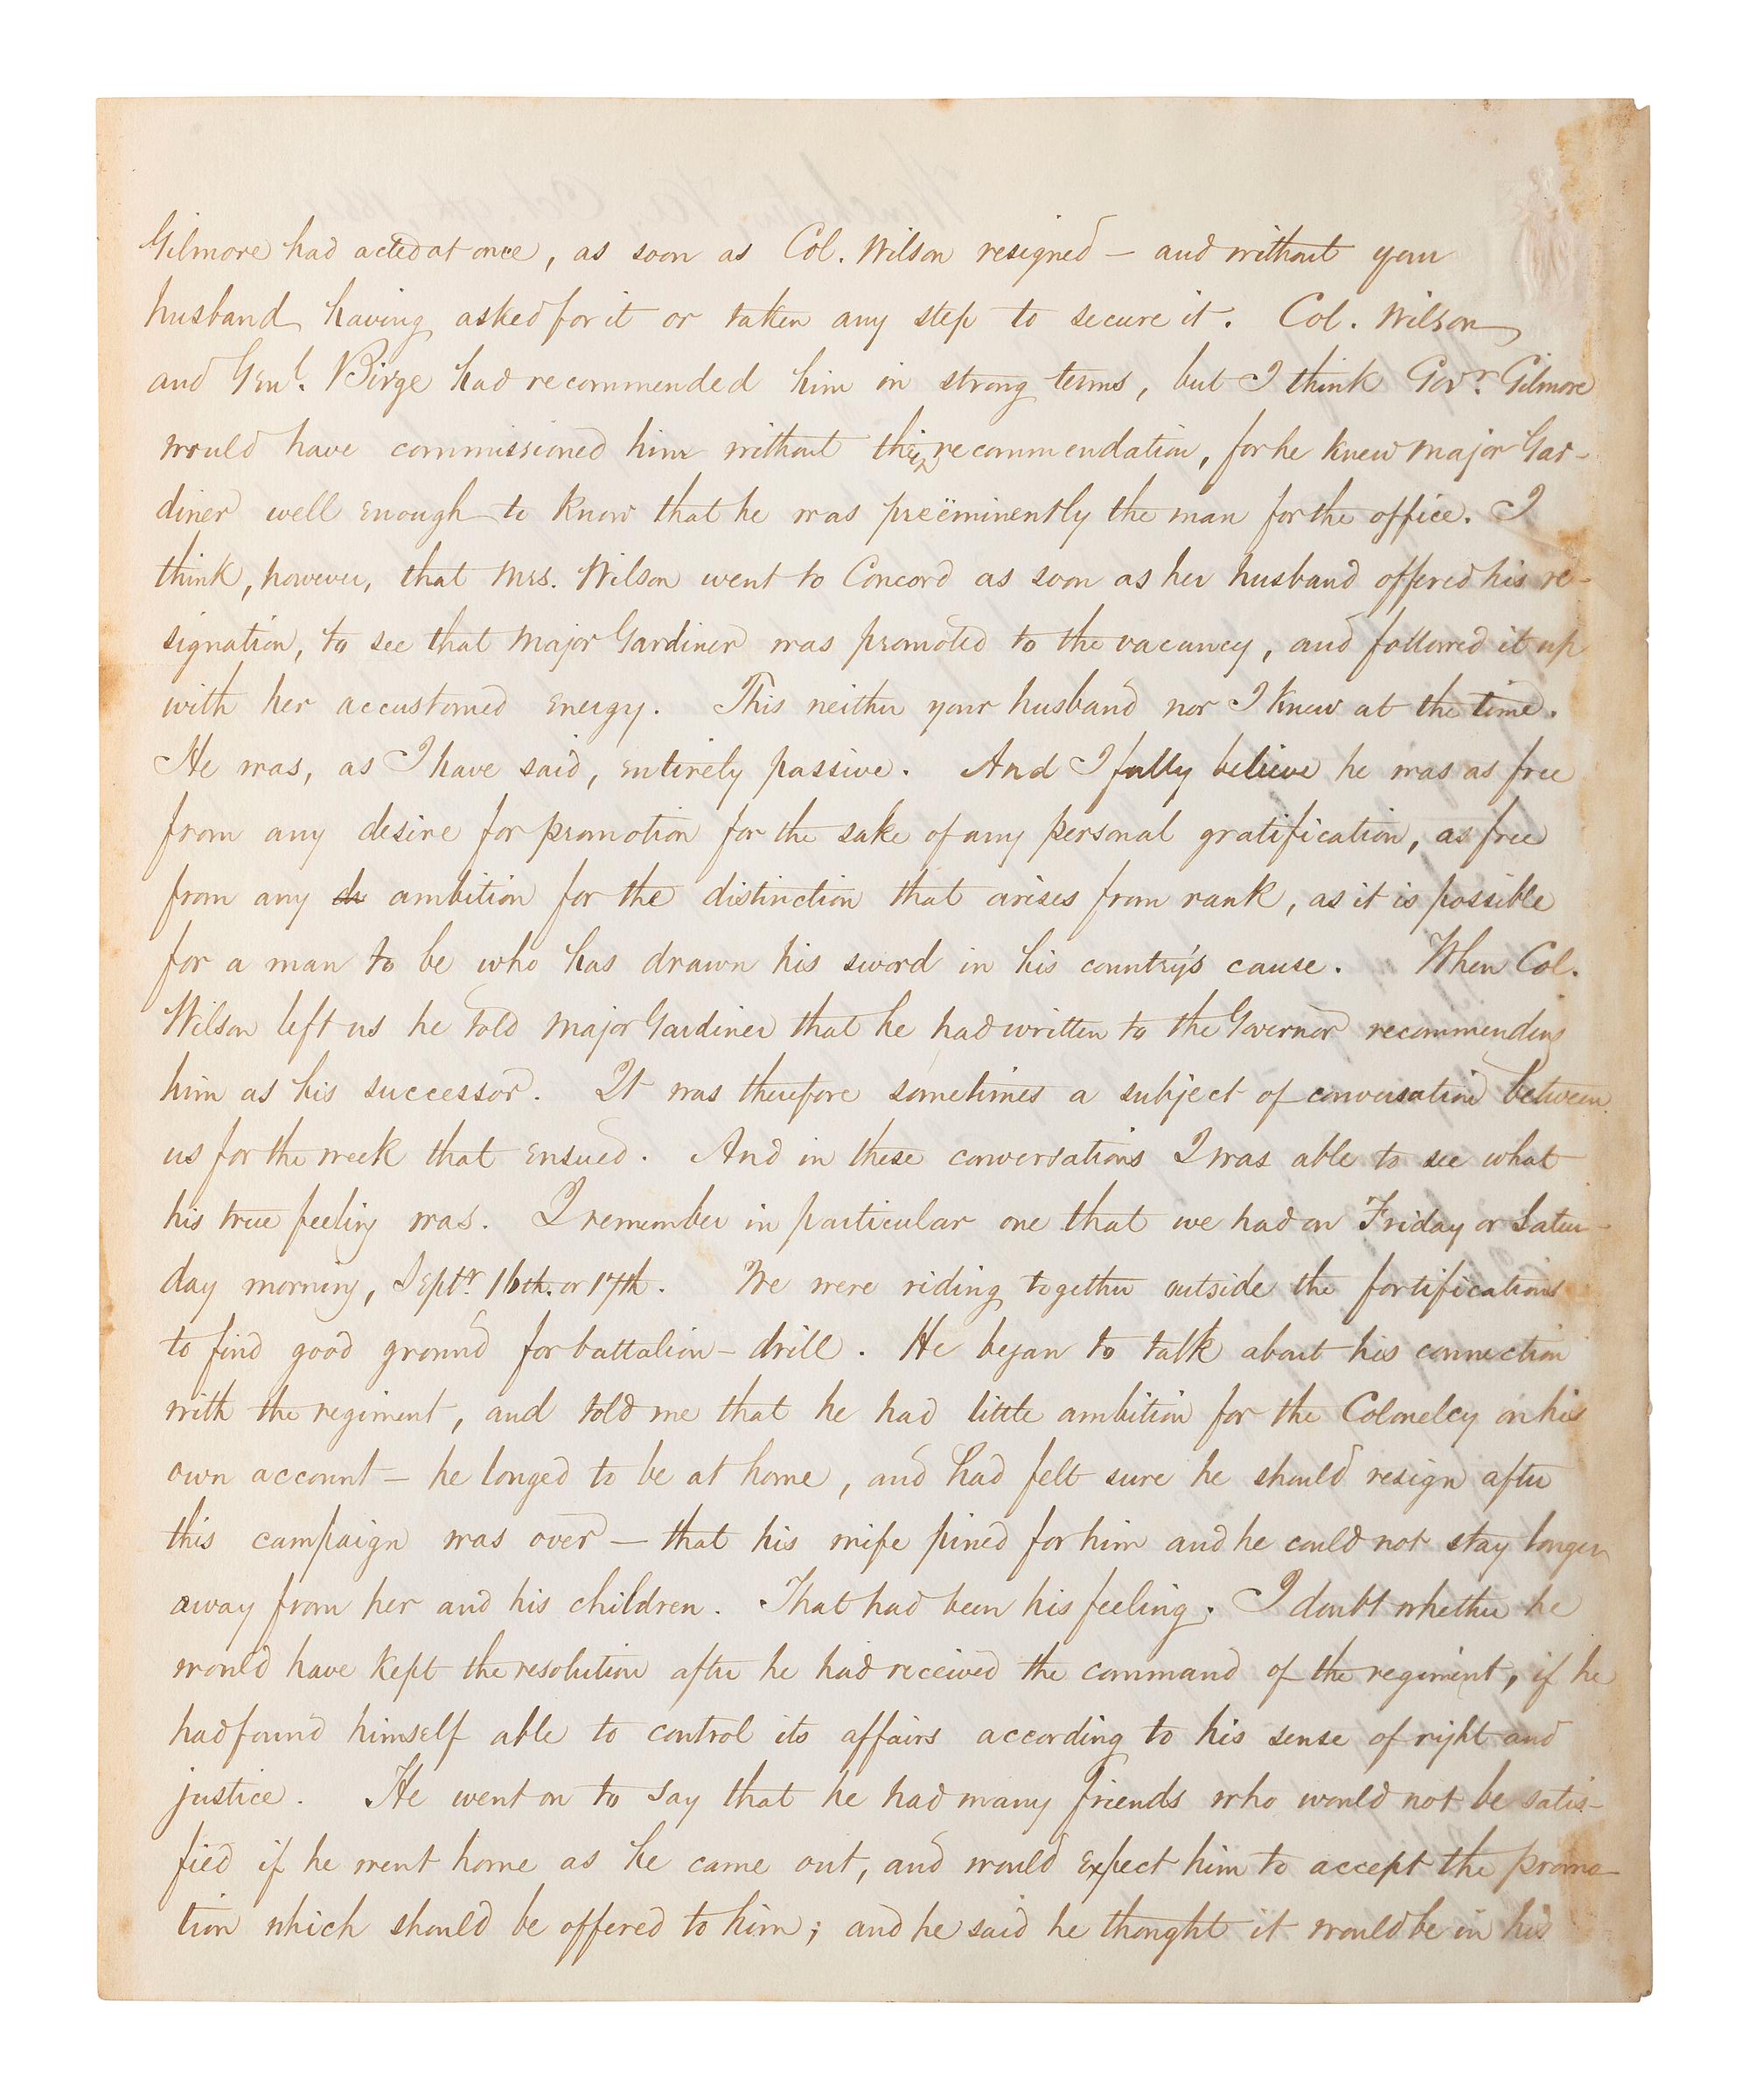 Gilmore had acted at once, as soon as Col. Wilson resigned — and without your
husband having asked for it or taken any step to secure it. Col. Wilson
and Genl. Birge had recommended him in strong terms, but I think Govr. Gilmore
would have commissioned him without their recommendation, for he knew Major Gar-
diner well enough to know that he was preëminently the man for the office. I
think, however, that Mrs. Wilson went to Concord as soon as her husband offered his re-
signation, to see that Major Gardiner was promoted to the vacancy, and followed it up
with her accustomed energy. This neither your husband nor I knew at the time.
He was, as I have said, entirely passive. And I fully believe he was as free
from any desire for promotion for the sake of any personal gratification, as free
from any de ambition for the distinction that arises from rank, as it is possible
for a man to be who has drawn his sword in his country's cause. When Col.
Wilson left us he told Major Gardiner that he had written to the Governor recommending
him as his successor. It was therefore sometimes a subject of conversation between
us for the week that ensued. And in these conversations I was able to see what
his true feeling was. I remember in particular one that we had on Friday or Satur-
day morning, Septr. 16th. or 17th. We were riding together outside the fortifications
to find good ground for battalion-drill. He began to talk about his connection
with the regiment, and told me that he had little ambition for the Colonelcy on his
own account — he longed to be at home, and had felt sure he should resign after
this campaign was over — that his wife pined for him and he could not stay longer
away from her and his children. That had been his feeling. I doubt whether he
would have kept the resolution after he had received the command of the regiment, if he
had found himself able to control its affairs according to his sense of right and
justice. He went on to say that he had many friends who would not be satis-
fied if he went home as he came out, and would expect him to accept the promo-
tion which should be offered to him; and he said he thought it would be in his